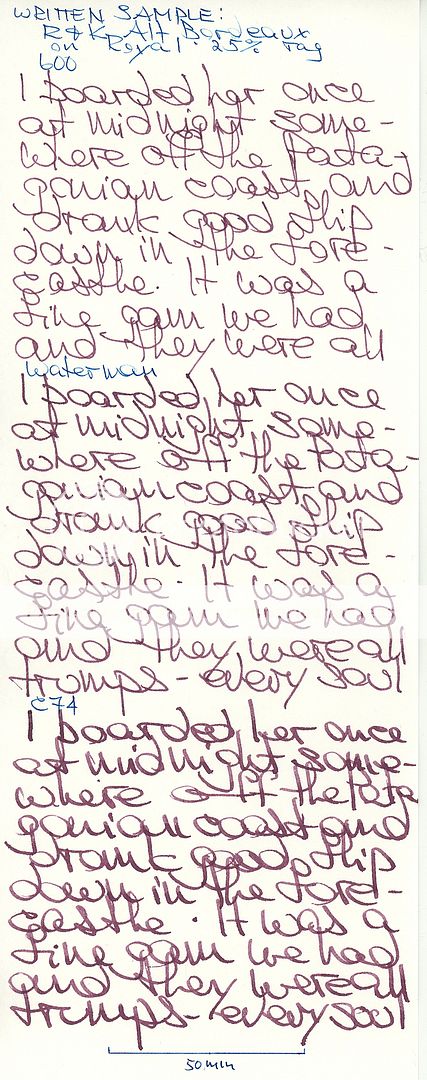 WRITTEN SAMPLE:
R&K Alt Bordeaux
on Royal · 25% rag
600
I boarded her once
at midnight some-
where off the Pata-
gonian coast, and
drank good flip
down in the fore-
castle. It was a
fine gam we had
and they were all
Waterman
I boarded her once
at midnight some-
where off the Pata-
gonian coast, and
drank good flip
down in the fore-
castle. It was a
fine gam we had
and they were all
trumps - every soul
C74
I boarded her once
at midnight some-
where off the Pata
gonian coast and
drank good flip
down in the fore-
castle. It was a
fine gam we had
and they were all
trumps - every soul
50 mm